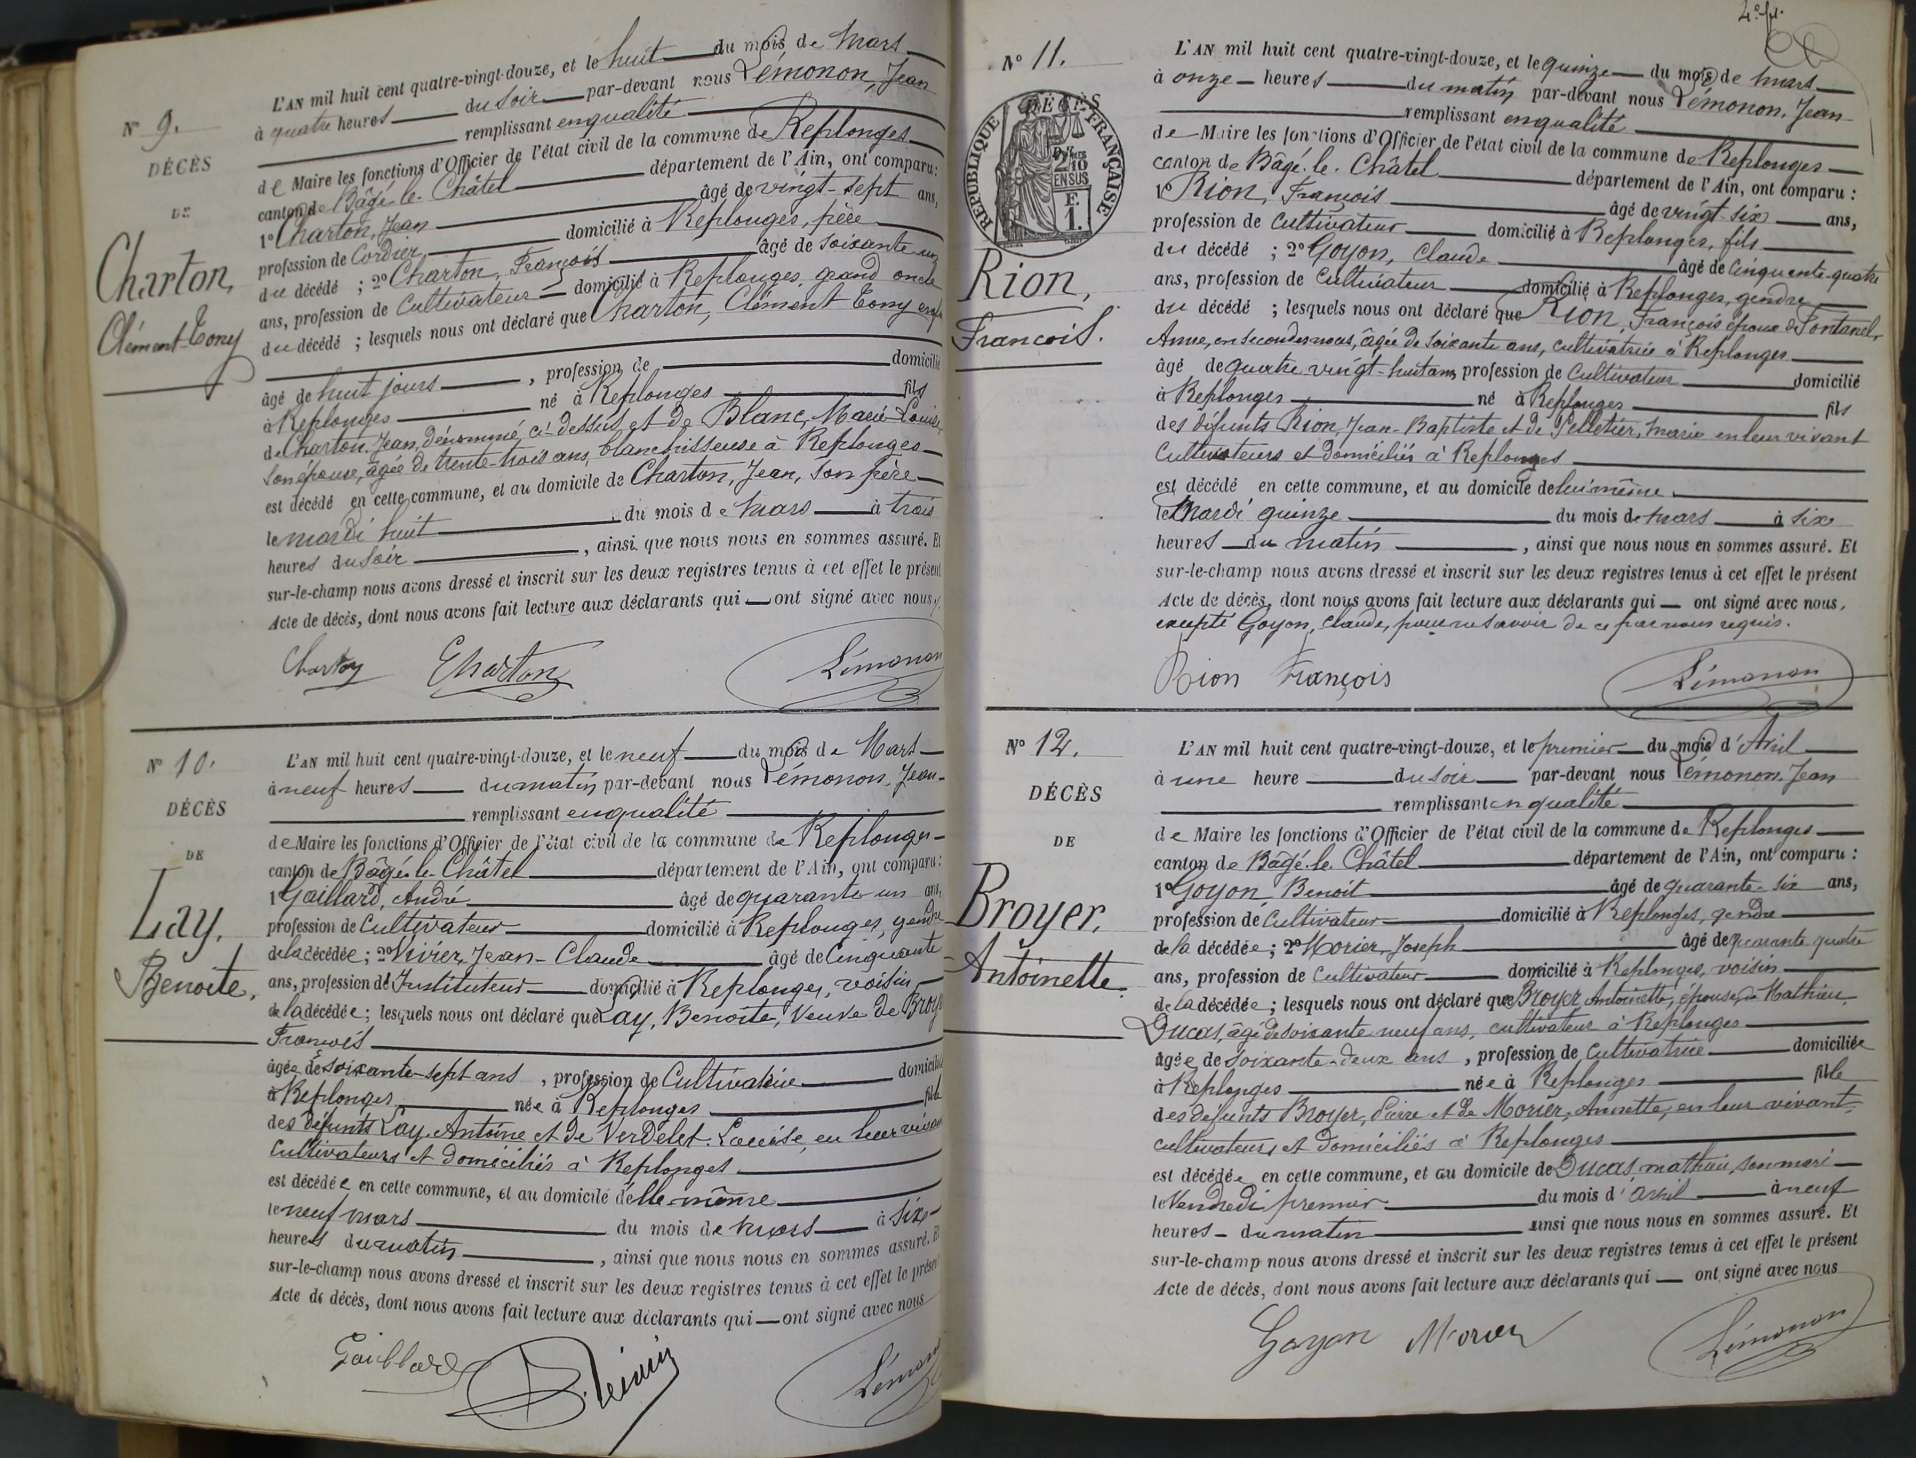 N° 9.
DÉCÈS
DE
Charton,
Clément-Tony
L'AN mil huit cent quatre-vingt-douze, et le huit du mois de Mars
à quatre heures du soir par-devant nous Lémonon, Jean
remplissant en qualité
de Maire les fonctions d'Officier de l'état civil de la commune de Replonges
canton de Bâgé-le-Châtel département de l'Ain, ont comparu:
1° Charton, Jean âgé de vingt-sept ans,
profession de Cordier domicilié à Replonges, père
du décédé ; 2° Charton, François âgé de soixante un
ans, profession de Cultivateur domicilié à Replonges, grand oncle
du décédé ; lesquels nous ont déclaré que Charton, Clément Tony
âgé de huit jours , profession de domicilié
à Replonges né à Replonges fils
de Charton, Jean, dénommé ci-dessus et de Blanc, Marie-Louise,
son épouse, âgée de trente-trois ans, blanchisseuse à Replonges
est décédé en cette commune, et au domicile de Charton, Jean, son père
le mardi huit du mois de Mars à trois
heures du soir , ainsi que nous nous en sommes assuré. Et
sur-le-champ nous avons dressé et inscrit sur les deux registres tenus à cet effet le présent
Acte de décès, dont nous avons fait lecture aux déclarants qui ont signé avec nous.
Charton Charton Lémonon
N° 10.
DÉCÈS
DE
Lay,
Benoite,
L'AN mil huit cent quatre-vingt-douze, et le neuf du mois de Mars
à neuf heures du matin par-devant nous Lémonon, Jean
remplissant en qualité
de Maire les fonctions d'Officier de l'état civil de la commune de Replonges
canton de Bâgé-le-Châtel département de l'Ain, ont comparu:
1° Gaillard, André âgé de quarante-un ans,
profession de Cultivateur domicilié à Replonges, gendre
de la décédée ; 2° Vivier, Jean-Claude âgé de Cinquante
ans, profession de Instituteur domicilié à Replonges, voisin
de la décédée ; lesquels nous ont déclaré que Lay, Benoite, Veuve de Broyer
François
âgée de soixante-sept ans , profession de Cultivatrice domiciliée
à Replonges née à Replonges fille
des défunts Lay, Antoine et de Verdelet, Louise, en leur vivant
Cultivateurs et domiciliés à Replonges
est décédée en cette commune, et au domicile d'elle-même
le neuf mars du mois de Mars à six
heures du matin , ainsi que nous nous en sommes assuré. Et
sur-le-champ nous avons dressé et inscrit sur les deux registres tenus à cet effet le présent
Acte de décès, dont nous avons fait lecture aux déclarants qui ont signé avec nous
Gaillard J. Vivier Lémonon
N° 11.
RÉPUBLIQUE FRANÇAISE
2/10 EN SUS
F. 1.
Rion,
François.
L'AN mil huit cent quatre-vingt-douze, et le quinze du mois de Mars
à onze heures du matin par-devant nous Lémonon, Jean
remplissant en qualité
de Maire les fonctions d'Officier de l'état civil de la commune de Replonges
canton de Bâgé-le-Châtel département de l'Ain, ont comparu :
1° Rion, François âgé de vingt-six ans,
profession de Cultivateur domicilié à Replonges, fils
du décédé ; 2° Goyon, Claude âgé de Cinquante-quatre
ans, profession de Cultivateur domicilié à Replonges, gendre
du décédé ; lesquels nous ont déclaré que Rion, François époux de Fontanel,
Anne, en secondes noces, âgée de soixante ans, cultivatrice à Replonges
âgé de quatre vingt-huit ans, profession de Cultivateur domicilié
à Replonges né à Replonges fils
des défunts Rion, Jean-Baptiste et de Pelletier, Marie en leur vivant
Cultivateurs et domiciliés à Replonges
est décédé en cette commune, et au domicile de lui même
le Mardi quinze du mois de Mars à six
heures du matin , ainsi que nous nous en sommes assuré. Et
sur-le-champ nous avons dressé et inscrit sur les deux registres tenus à cet effet le présent
Acte de décès, dont nous avons fait lecture aux déclarants qui ont signé avec nous,
excepté Goyon, Claude, pour ne savoir de ce par nous requis.
Rion François Lémonon
N° 12.
DÉCÈS
DE
Broyer,
Antoinette.
L'AN mil huit cent quatre-vingt-douze, et le premier du mois d'Avril
à une heure du soir par-devant nous Lémonon, Jean
remplissant en qualité
de Maire les fonctions d'Officier de l'état civil de la commune de Replonges
canton de Bâgé-le-Châtel département de l'Ain, ont comparu :
1° Goyon, Benoit âgé de quarante-six ans,
profession de Cultivateur domicilié à Replonges, gendre
de la décédée ; 2° Morier, Joseph âgé de quarante quatre
ans, profession de Cultivateur domicilié à Replonges, voisin
de la décédée ; lesquels nous ont déclaré que Broyer Antoinette, épouse de Mathieu
Ducas, âgé de soixante neuf ans, cultivateur à Replonges
âgée de soixante-deux ans , profession de Cultivatrice domiciliée
à Replonges née à Replonges fille
des défunts Broyer, Pierre et de Morier, Annette, en leur vivant
cultivateurs et domiciliés à Replonges
est décédée en cette commune, et au domicile de Ducas mathieu, son mari
le Vendredi premier du mois d'avril à neuf
heures du matin ainsi que nous nous en sommes assuré. Et
sur-le-champ nous avons dressé et inscrit sur les deux registres tenus à cet effet le présent
Acte de décès, dont nous avons fait lecture aux déclarants qui ont signé avec nous
Goyon Morier Lémonon